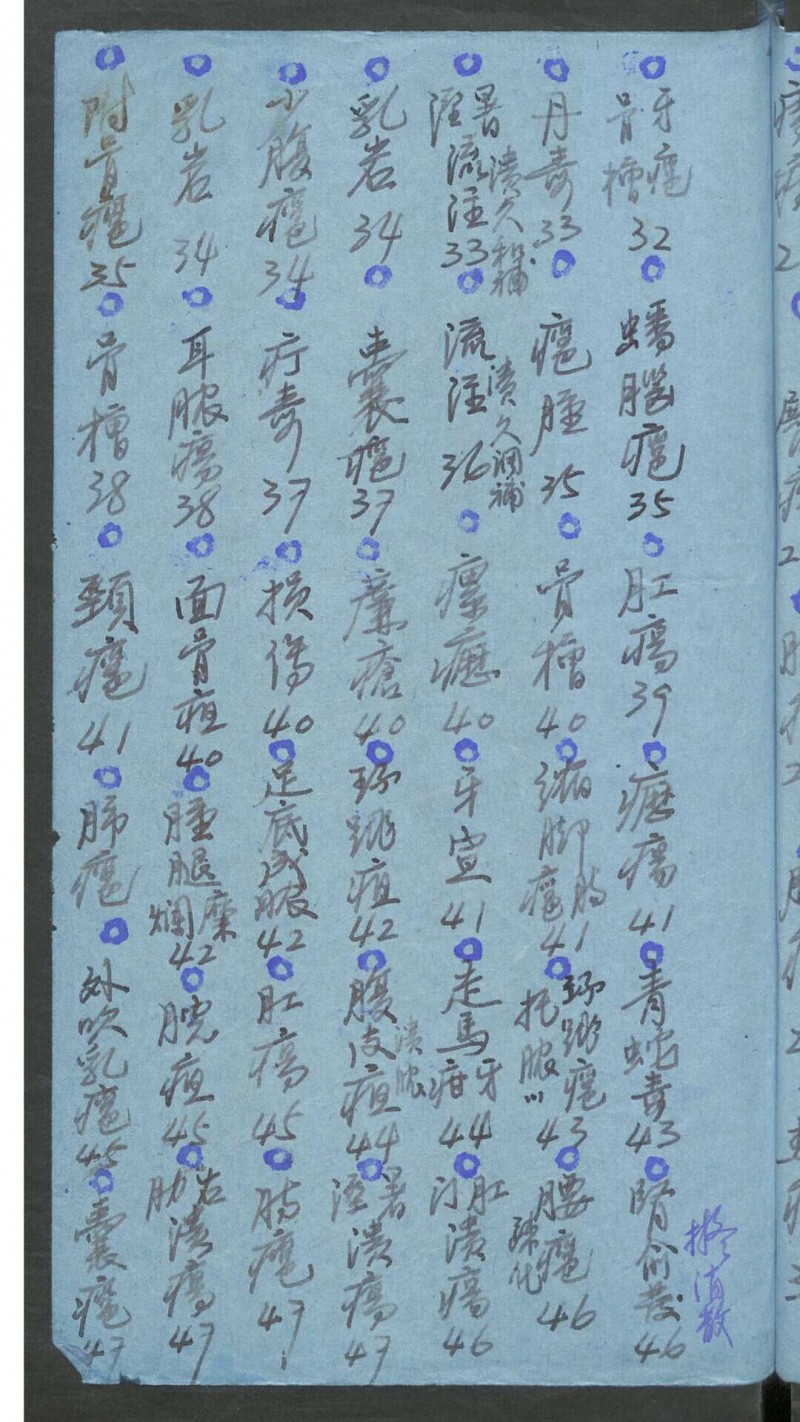 牙癰 骨槽 32
蟠腦癰 35
肛瘍 39
瘛瘍 41
青蛇毒 43
腎俞發 46
擬消散
丹毒 33
癰腫 35
骨槽 40
縮脚腸癰 41
环跳癰 托膿 43
腰癰 46
暑溼流注 33 潰久和補
流注 36 潰久潤補
瘰癧 40
牙宣 41
走馬牙疳 44
肛門潰瘍 46
乳岩 34
囊癰 37
廉瘡 40
环跳疽 42
腹皮疽 44 潰膿
暑溼潰瘍 47
小腹癰 34
疔毒 37
损傷 40
足底成膿 42
肛瘍 45
腸癰 47
乳岩 34
耳膿瘍 38
面骨疽 40
腫腿糜爛 42
脘疽 45
右肋潰瘍 47
附骨癰 35
骨槽 38
頸癰 41
肺癰
外吹乳癰 45
囊癰 47